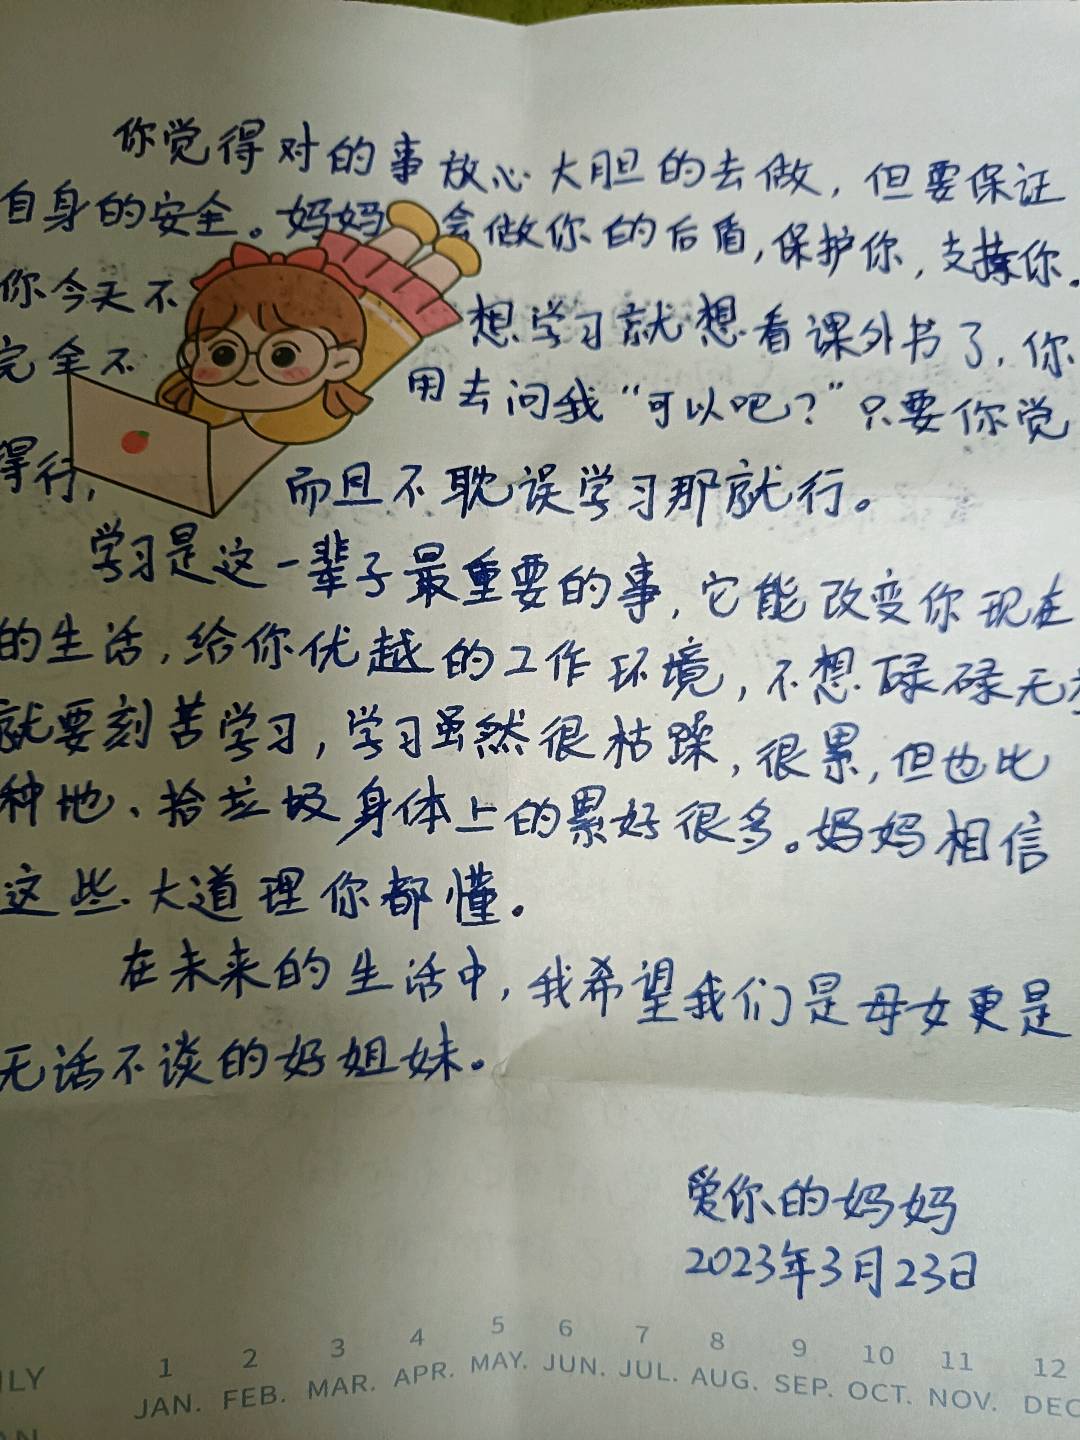 你觉得对的事放心大胆的去做，但要保证
自身的安全。妈妈会做你的后盾，保护你，支撑你。
你今天不想学习就想看课外书了，你
完全不用去问我“可以吧？”只要你觉
得行，而且不耽误学习那就行。
学习是这一辈子最重要的事，它能改变你现在
的生活，给你优越的工作环境，不想碌碌无
就要刻苦学习，学习虽然很枯躁，很累，但也比
种地、拾垃圾身体上的累好很多。妈妈相信
这些大道理你都懂。
在未来的生活中，我希望我们是母女更是
无话不谈的好姐妹。
爱你的妈妈
2023年3月23日
1 2 3 4 5 6 7 8 9 10 11 12
JAN. FEB. MAR. APR. MAY. JUN. JUL. AUG. SEP. OCT. NOV. DEC